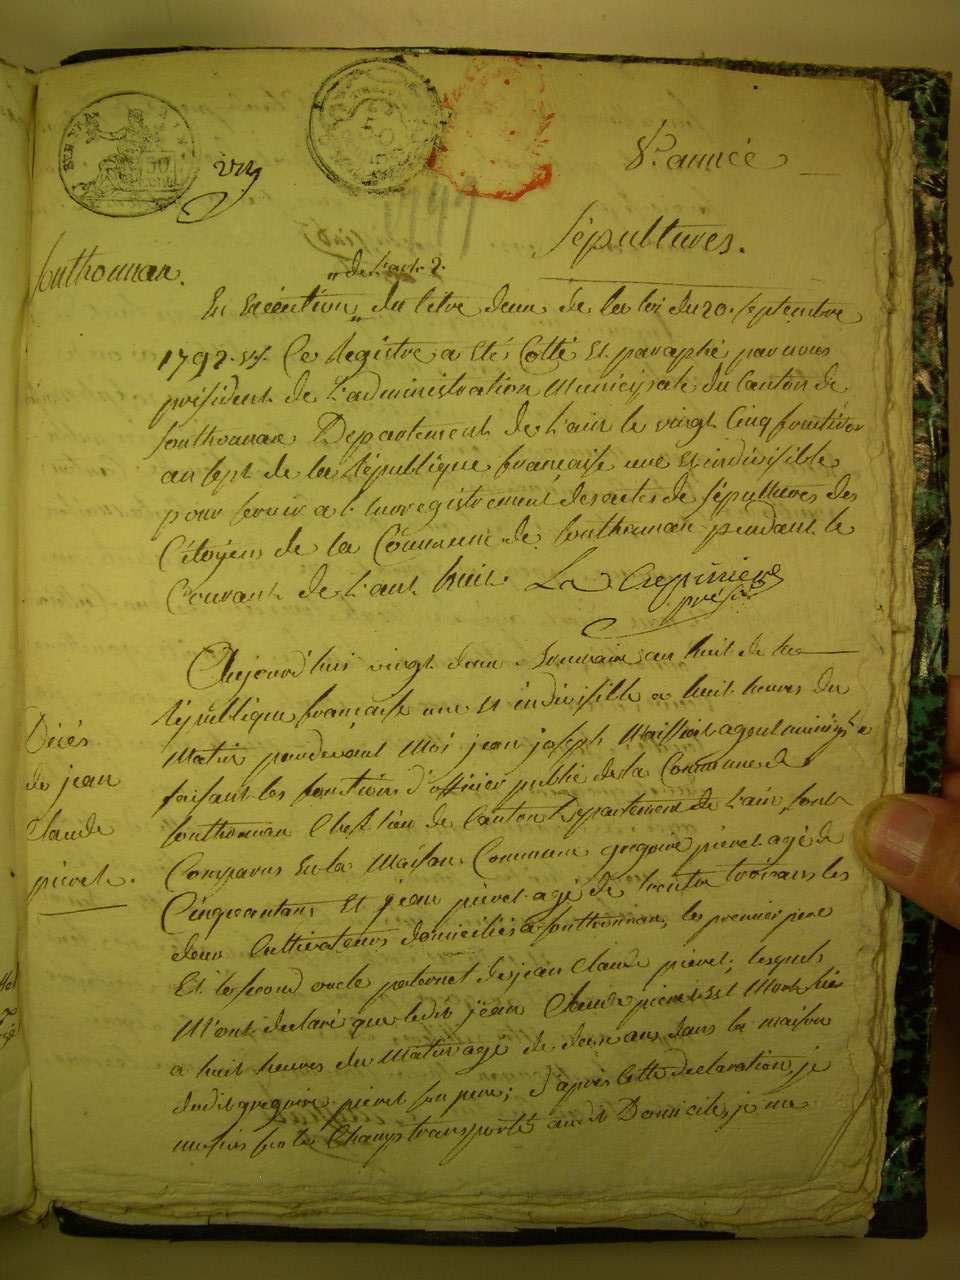 8.e année
Sépultures.
Southonnax.
"de l'art. 2.
En Exécution " du titre deux de la loi du 20. septembre
1792. v.s. Ce Registre a été Cotté et paraphé par nous
président de l'administration Municipale du Canton de
Southonnax Departement de l'ain le vingt Cinq fructidor
an sept de la République française une et indivisible
pour servir a l'enregistrement des actes de sépultures des
Citoyens de la Commune de Southonnax pendant le
Courant de l'an huit. La Crepiniere
présid.
Aujourd'hui vingt deux du an huit de la
République française une et indivisible a huit heures du
Matin pardevant Moi jean joseph Maillat agent
faisant les fonctions d'officier public de la Commune de
Southonnax Chef lieu de Canton Departement de l'ain, sont
Comparus en la Maison Commune grégoire pieret agé de
Cinquante ans Et jean pieret agé de trente trois ans les
deux Cultivateurs domiciliés a Southonnax, le premier pere
Et le second oncle paternel de jean Claude pieret; lesquels
M'ont declaré que ledit jean Claude pieret est Mort hier
a huit heures du Matin agé de deux ans dans la maison
dudit gregoire pieret son pere; d'après cette declaration je
me suis sur le Champ transporté audit Domicile, je me
Décès
de jean
Claude
pieret.